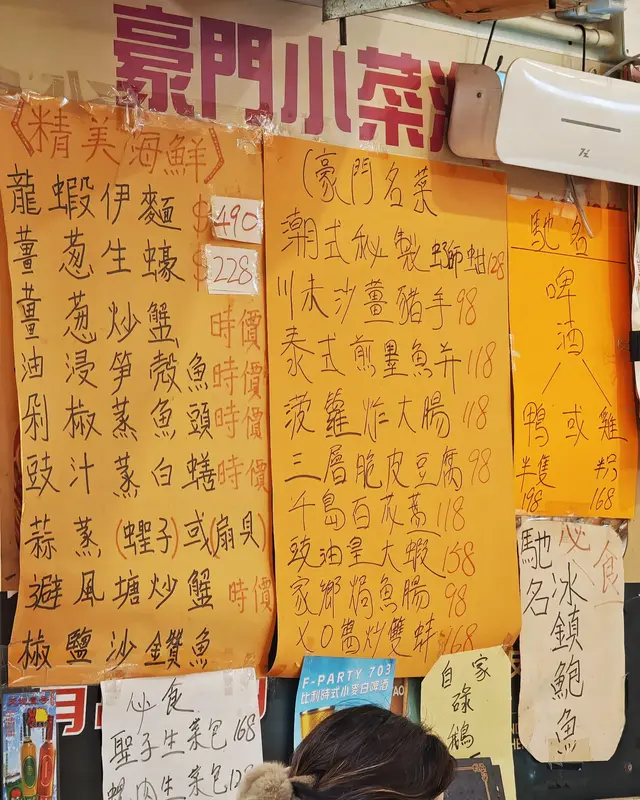 豪門小菜
《精美海鮮》
龍蝦伊麵 $490
薑葱生蠔 $228
薑葱炒蟹 時價
油浸笋殼魚 時價
剁椒蒸魚頭 時價
豉汁蒸白鱔 時價
蒜蒸(蟶子)或(扇貝)
避風塘炒蟹 時價
椒鹽沙鑽魚
(豪門名菜
潮式秘製 128
川未沙薑豬手 98
泰式煎墨魚并 118
菠蘿炸大腸 118
三層脆皮豆腐 98
千島百花 118
豉油皇大蝦 158
家鄉焗魚腸 98
XO醬炒雙蚌 168
馳名
啤酒
鴨或雞
半隻
198 168
必食
馳名冰鎮鮑魚
必食
聖子生菜包 168
肉生菜包 128
F-PARTY 703
比利時式小麥白啤酒
自家
碌鵝